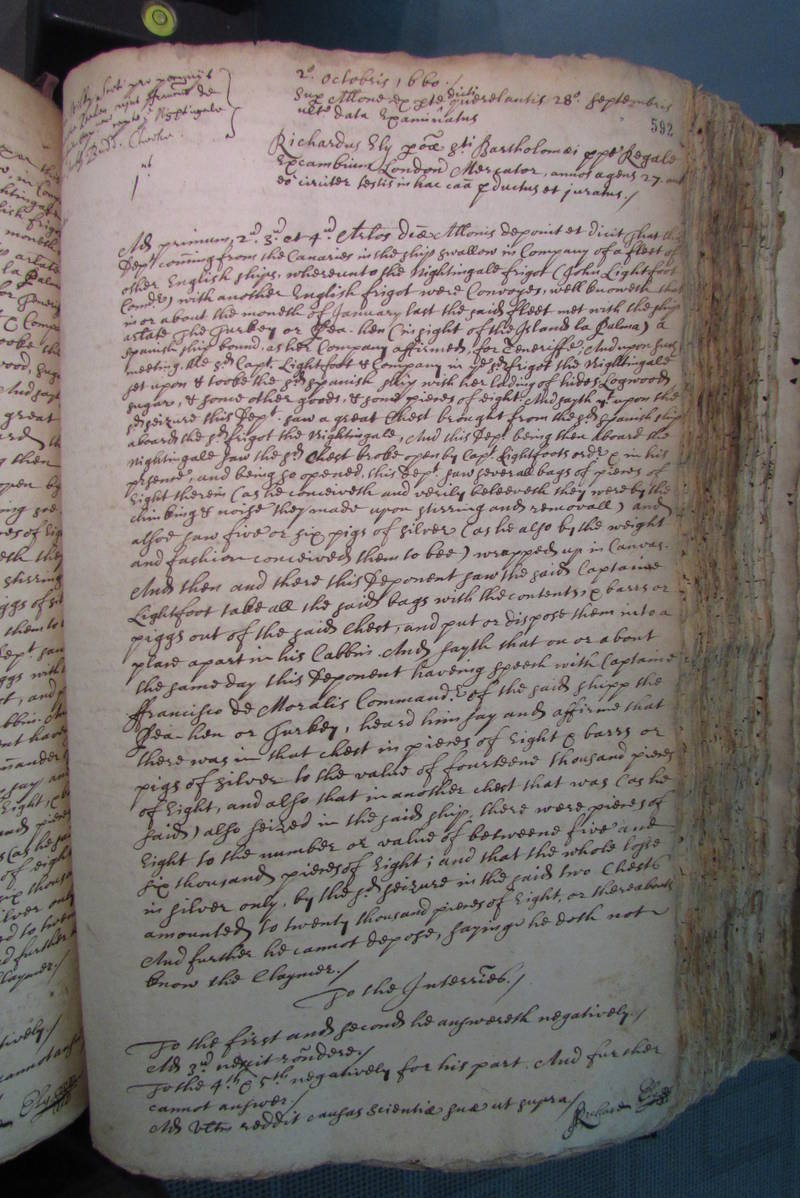 2o. Octobris, 1660./
Sup Allone ex pte dicti querelantis 28o. Septembris
ulto data Examinatus
592
Richardus Ely pōæ Sti Bartholomæi ppe Regale
Excambium London Mercator, annos agens 27. aut
eo circiter testis in hac caa pductus et juratus./
1us
Ad primum, 2d. 3d. et 4d. Artos dcæ Allonis deponit et dicit That this
Dept comming from the Canaries in the ship Swallow in Company of a fleet of
other English ships, whereunto the Nightingale frigot (John Lightfoot
Comder) with another English frigot were Convoyes, well knoweth that
in or about the moneth of January last the said fleet met with the ship
arlate The Turkey or Pea-hen (in sight of the Island la Palma) a
spanish ship bound, as her Company affirmed, for Teneriffe, And upon such
meeting, the sd Capt. Lightfoot & Company in ye sd frigot the Nightingale
set upon & tooke the sd spanish ship with her lading of hides Logwood
sugar, & some other goods, & some pieces of eight, And sayth yt upon the
sd seizure this Dept. saw a great Chest brought from the sd spanish ship
aboard the sd frigot the Nightingale, And this Dept being then aboard the
Nightingale saw the sd Chest broke open by Capt. Lightfoots ordr & in his
presence, and being so opened, this Dept. saw severall bags of pieces of
Eight therein (as he conceiveth and verily beleeveth they were by the
chinking & noise they made upon stirring and removall) and
alsoe saw five or six pigs of silver (as he also by the weight
and fashion conceived them to bee) wrapped up in Canvas.
And then and there this Deponent saw the said Captaine
Lightfoot take all the said bags with the contents, & barrs or
piggs out of the said Chest, and put or dispose them into a
place apart in his Cabbin. And sayth that on or about
the same day this Deponent haveing speech with Captaine
Francisco de Moralis Commandr. of the said shipp the
Pea-hen or Turkey, heard him say and affirme that
there was in that chest in pieces of Eight & barrs or
pigs of silver to the value of fourteene thousand pieces
of Eight, and also that in another chest that was (as he
said) also seized in the said ship, there were pieces of
Eight to the number or value of betweene five and
six thousand pieces of Eight; and that the whole losse
in silver only, by the sd. seizure in the said two Chests
amounted to twenty thousand pieces of Eight, or thereabouts
And further he cannot depose, saying he doth not
know the Claymer./
To the Interries./
To the first and second he answereth negatively./
Ad 3d nescit respondere./
To the 4th & 5th negatively for his part. And further
cannot answer./
Ad Ultm reddit causas scientiæ suæ ut supra/
Richard Ely